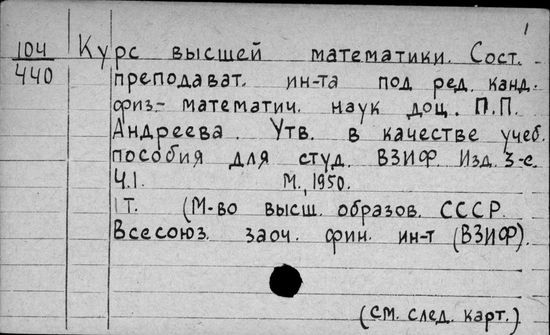 1
104 Курс высшей математики. Сост. -
440 преподават. ин-та под ред. канд.
физ.- математич. наук доц. П.П.
Андреева. Утв. в качестве учеб.
пособия для студ. ВЗИФ. Изд. 3-е.
Ч.1. М., 1950.
1 т. (М-во высш. образов. СССР.
Всесоюз. заоч. фин. ин-т (ВЗИФ).
(см. след. карт.)